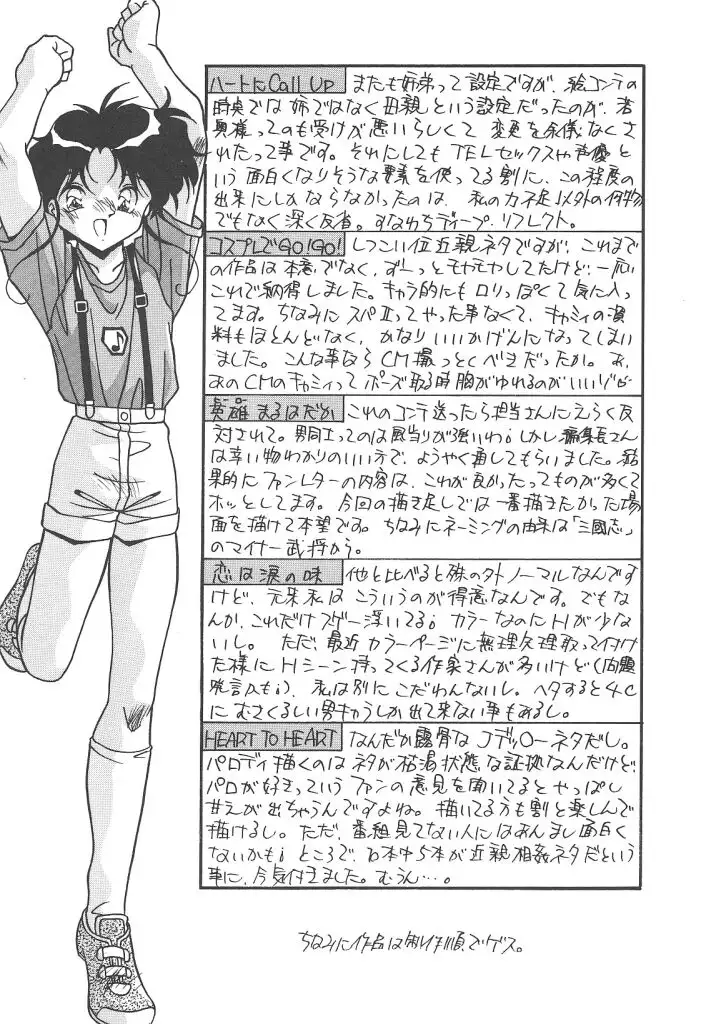 ハートにCall Up またも姉弟って設定ですが、絵コンテの
時点では姉ではなく母親という設定だったのが、若
奥様ってのも受けが悪いらしくて 変更を余儀なくさ
れたって事です。それにしてもTELセックスや声優と
いう面白くなりそうな要素を使ってる割に、この程度の
出来にしかならなかったのは、私の力不足以外の何物
でもなく深く反省。すなわちディープ・リフレクト。
コスプレでGO!GO! しつこい位近親ネタですが、これまで
の作品は本意でなく、ずーっとモヤモヤしてたけど、一応
これで納得しました。キャラ的にもロリっぽくて気に入っ
てます。ちなみにスパIIってやった事なくて、キャミィの資
料もほとんどなく、かなりいいかげんになってしまい
ました。こんな事ならCM撮っとくべきだったか。あ、
あのCMのキャミィって ポーズ取る時胸がゆれるのがいいゾ
英雄まるはだか これのコンテ送ったら担当さんにえらく反
対されて。男同士ってのは風当りが強いわ¡しかし編集長さん
は幸い物わかりのいい方で、ようやく通してもらいました。結
果的にファンレターの内容は、これが良かったってものが多くて
ホッとしてます。今回の描き足しでは一番描きたかった場
面を描けて本望です。ちなみにネーミングの由来は「三國志」
のマイナー武将から。
恋は涙の味 他と比べると殊の外ノーマルなんです
けど、元来私はこういうのが得意なんです。でもな
んか、これだけスゲー浮いてる¡ カラーなのにHが少な
いし。ただ、最近カラーページに無理矢理取って付け
た様にHシーン持ってくる作家さんが多いけど(問題
発言かも¡)、私は別にこだわんないし。ヘタすると4C
にむさくるしい男キャラしか出て来ない事もあるし。
HEART TO HEART なんだか露骨なJデッ○ーネタだし。
パロディ描くのはネタが枯渇状態な証拠なんだけど、
パロが好きっていうファンの意見を聞いてるとやっぱし
甘えが出ちゃうんですよね。描いてる方も割と楽しんで
描けるし。ただ、番組見てない人にはあんまし面白く
ないかも¡ ところで、10本中5本が近親相姦ネタだという
事に、今気付きました。むうん…。
ちなみに作品は制作順でゲス。